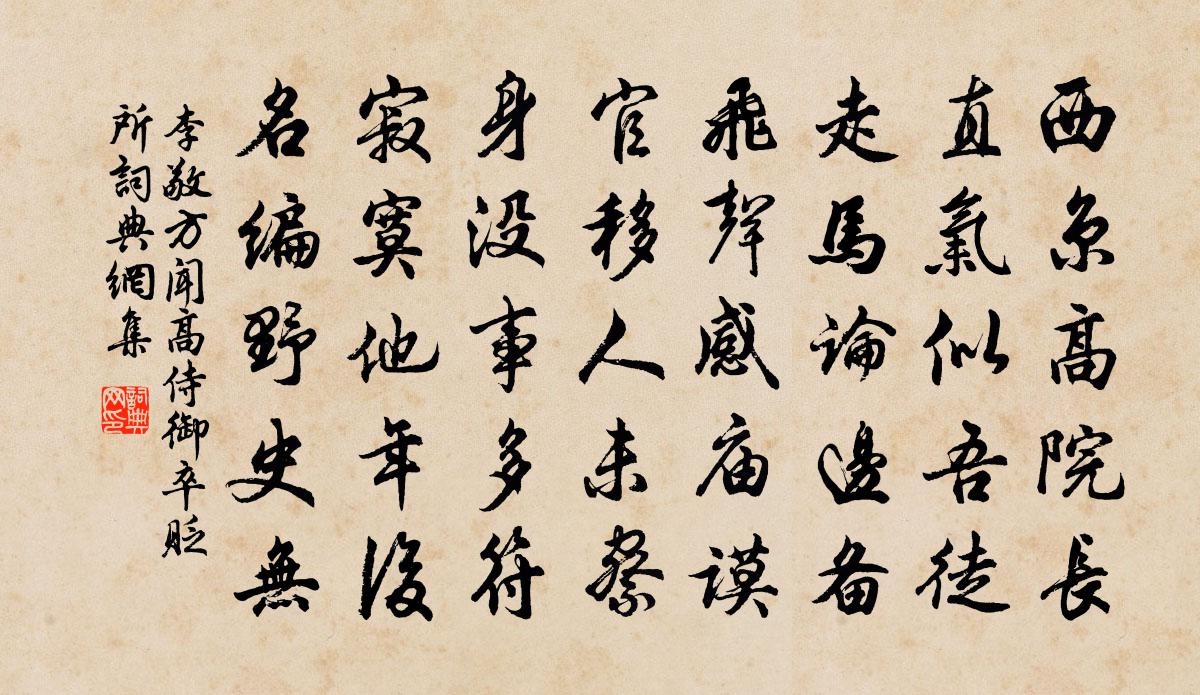 西京高院長
直氣似吾徒
走馬論邊备
飛聲感庙謨
官移人未察
身没事多符
寂寞他年後
名編野史無
李敬方聞高侍御卒貶
所詞典網集
詞典
网印